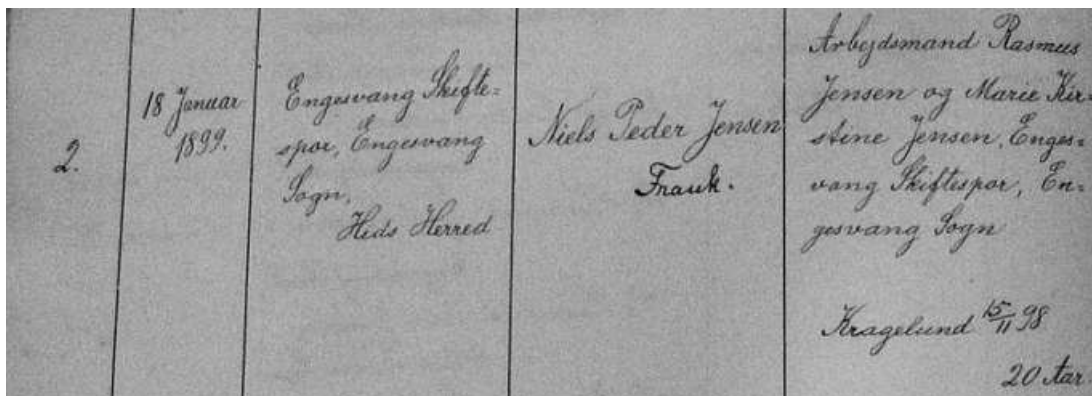 2.
18 Januar
1899.
Engesvang Skifte=
spor, Engesvang
Sogn,
Hids Herred
Niels Peder Jensen
Frank.
Arbejdsmand Rasmus
Jensen og Marie Kir=
stine Jensen, Enges=
vang Skiftespor, En=
gesvang Sogn
Kragelund 15/11 98
20 Aar.